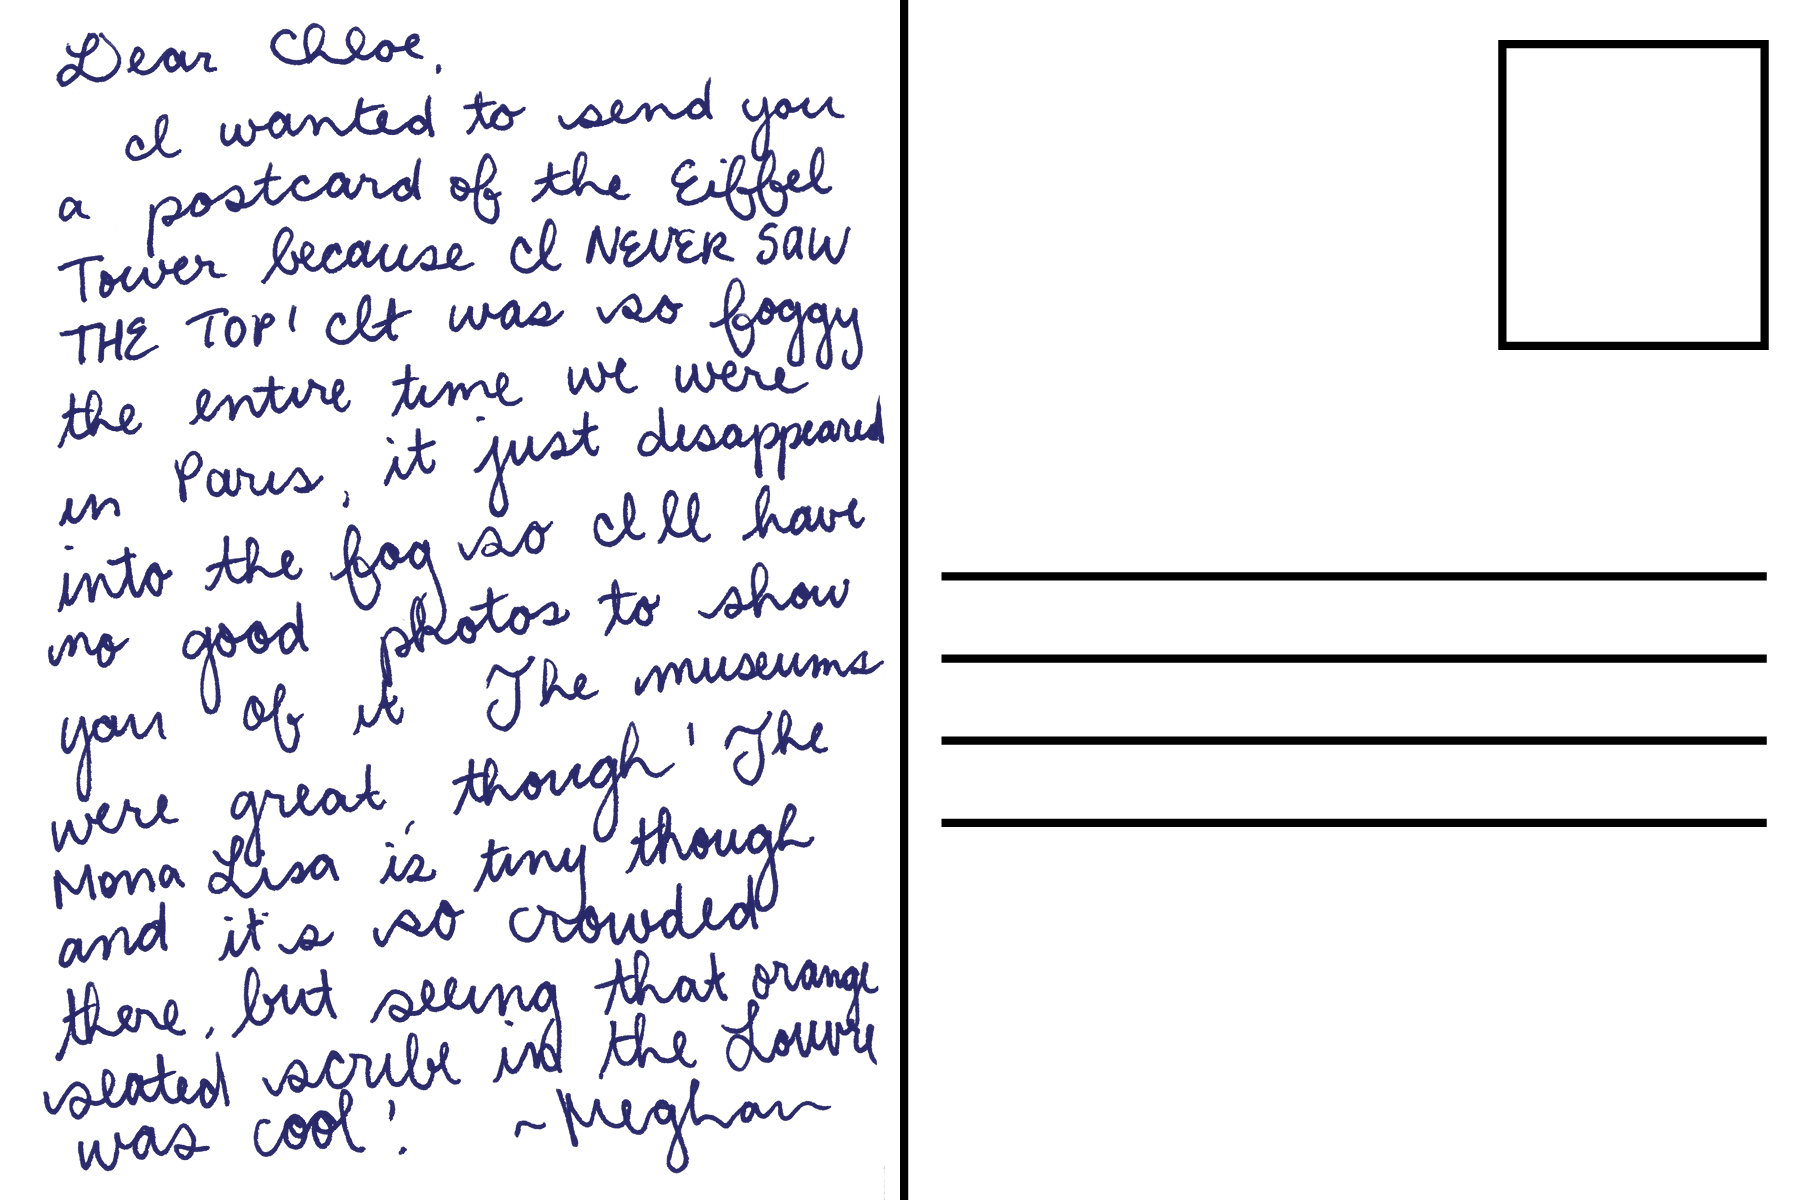 Dear Chloe,
I wanted to send you
a postcard of the Eiffel
Tower because I NEVER SAW
THE TOP! It was so foggy
the entire time we were
in Paris, it just disappeared
into the fog so I'll have
no good photos to show
you of it. The museums
were great, though! The
Mona Lisa is tiny though
and it's so crowded
there, but seeing that orange
seated scribe in the Louvre
was cool! ~Meghan